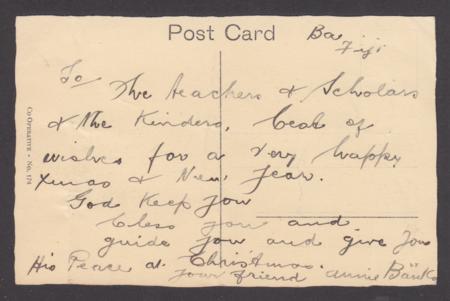 Post Card
Ba
Fiji
To
The teachers & Scholars
& the Kinders, Best of
wishes for a very happy
Xmas & New Year.
God Keep you
bless you and
guide you and give you
His Peace at Christmas.
your friend Annie Banks
CO-OPERATIVE • No. 174